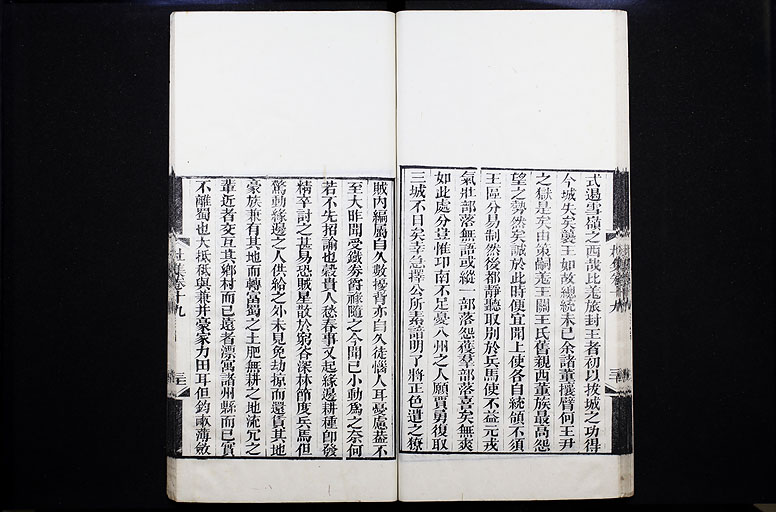 式遏雪嶺之西哉比羌族封王者初以拔城之功得
今城失矣襲王如故總統未已余諸董攘臂何王尹
之獄是矣由策嗣羌王關王氏舊親西董族最高怨
望之勢然矣誠於此時便宜開上使各自統領不須
王區分易制然後都靜聽取別於兵馬使不益元戎
氣壯部落無語或縱一部落怨獲羣部落喜矣無爽
如此處分豈惟邛南不足憂八州之人願賈勇復取
三城不日矣幸急擇公所素諳明了將正色遣之獠
杜集卷十九
賊內編屬自久數擾背亦自久徒惱人耳憂慮蓋不
至大昨聞受鐵券爵祿隨之今聞已小動爲之奈何
若不先招諭也穀貴人愁春事又起緣邊耕種卽發
精卒討之甚易恐賊星散於窮谷深林節度兵馬但
驚動緣邊之人供給之外未見免劫掠而還貨其地
豪族兼有其地而轉富蜀之土肥無耕之地流冗之
輩近者交互其鄉村而已遠者漂寓諸州縣而已實
不離蜀也大抵祇與兼并豪家力田耳但鈞畝薄斂